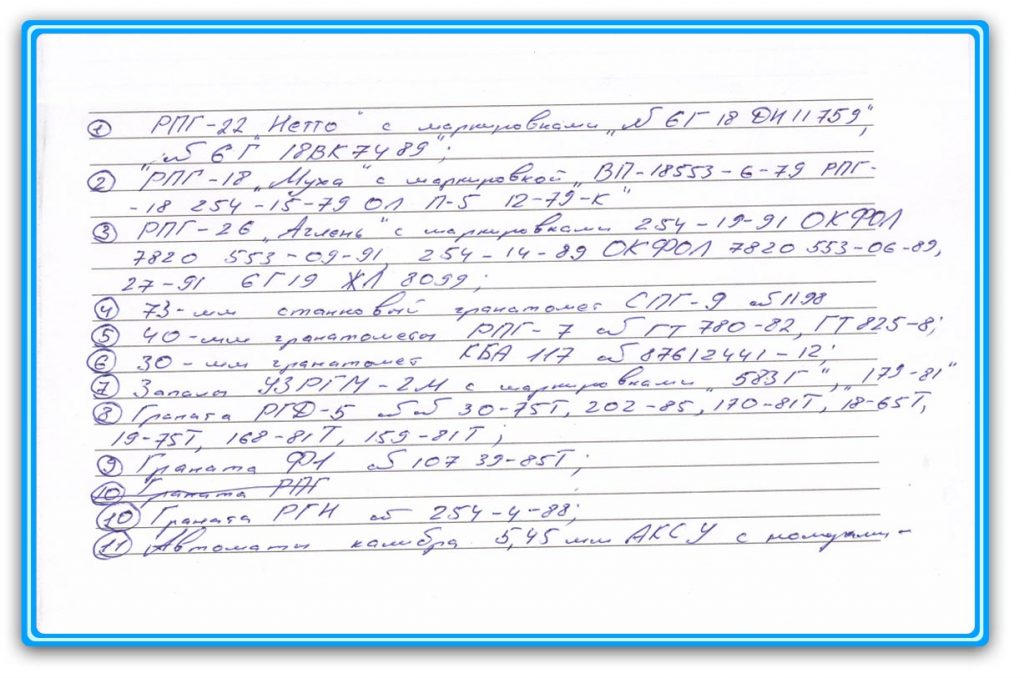 ① РПГ-22 „Нетто" с маркировками „№ 6Г 18 ДИ 11759",
„№ 6Г 18ВК 7489";
② РПГ-18 „Муха" с маркировкой „ВП-18553-6-79 РПГ-
-18 254-15-79 ОЛ П-5 12-79-К"
③ РПГ-26 „Аглень" с маркировками 254-19-91 ОКФОЛ
7820 553-09-91, 254-14-89 ОКФОЛ 7820 553-06-89,
27-91 6Г19 ЖЛ 8099;
④ 73-мм станковый гранатомет СПГ-9 №1198
⑤ 40-мм гранатометы РПГ-7 № ГТ 780-82, ГТ 825-8;
⑥ 30-мм гранатомет КБА 117 № 87612441-12;
⑦ Запалы УЗРГМ-2М с маркировками „583Г", „179-81"
⑧ Граната РГД-5 №№ 30-75Т, 202-85, 170-81Т, 18-65Т,
19-75Т, 168-81Т, 159-81Т;
⑨ Граната Ф1 № 107 39-85Т;
⑩ Граната
⑩ Граната РГН № 254-4-88;
⑪ Автоматы калибра 5,45 мм АКСУ с номерами-